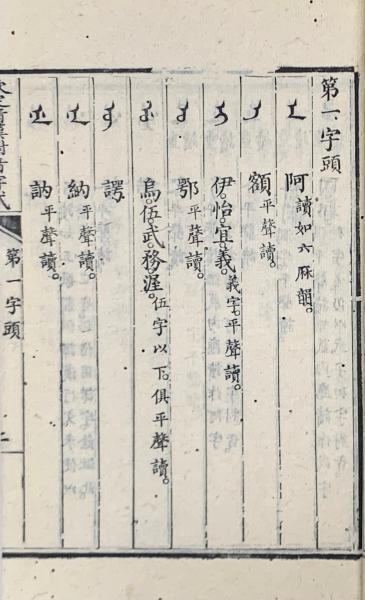 第一字頭
ᠠ 阿讀如六麻韻。
ᡝ 額平聲讀。
ᡳ 伊。怡。宜。義。義字。平聲讀。
ᠣ 鄂平聲讀。
ᡠ 烏。伍。武。務。渥。伍字以下。俱平聲讀。
ᡡ 諤
ᠨᠠ 納平聲讀。
ᠨᡝ 訥平聲讀。
第一字頭